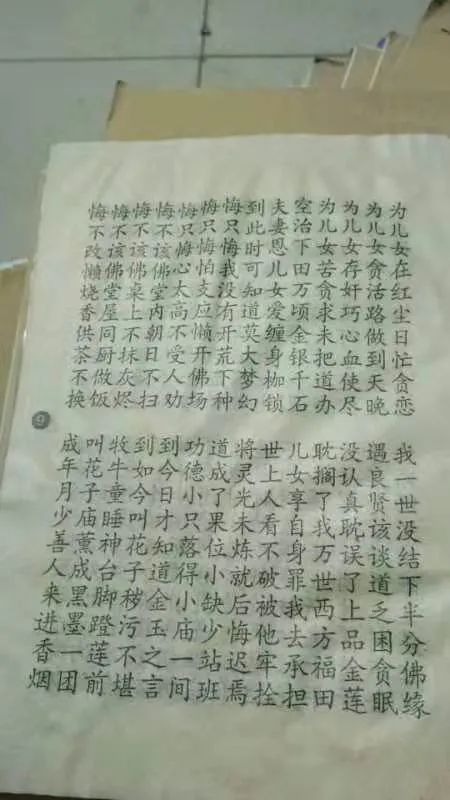 为儿女在红尘日忙贪恋
为儿女贪活路做到天晚
为儿女存奸巧心血使尽
为儿女苦贪求未把道办
空治下田万顷金银千石
夫妻恩儿女爱缠身枷锁
到此时可知道莫大梦幻
悔只悔我没有开荒下种
悔只悔怕支应懒开佛场
悔只悔心太高不受人劝
悔不该佛堂内不朝日扫
悔不该佛桌上不抹灰烬
悔不该佛堂屋同厨做饭
悔不改懒烧香供茶不换
9
我一世没结下半分佛缘
遇良贤该谈道乏困贪眠
没认真耽误了上品金莲
耽搁了我万世西方福田
儿女享自身罪我去承担
世上人看不破被他牢拴
将灵光未炼就后悔迟焉
道成了果位小缺少站班
功德小只落得小庙一间
到今日才知道金玉之言
到如今叫花子秽污不堪
牧牛童睡神台脚蹬莲前
叫花子庙薰成黑墨一团
成年月少善人来进香烟